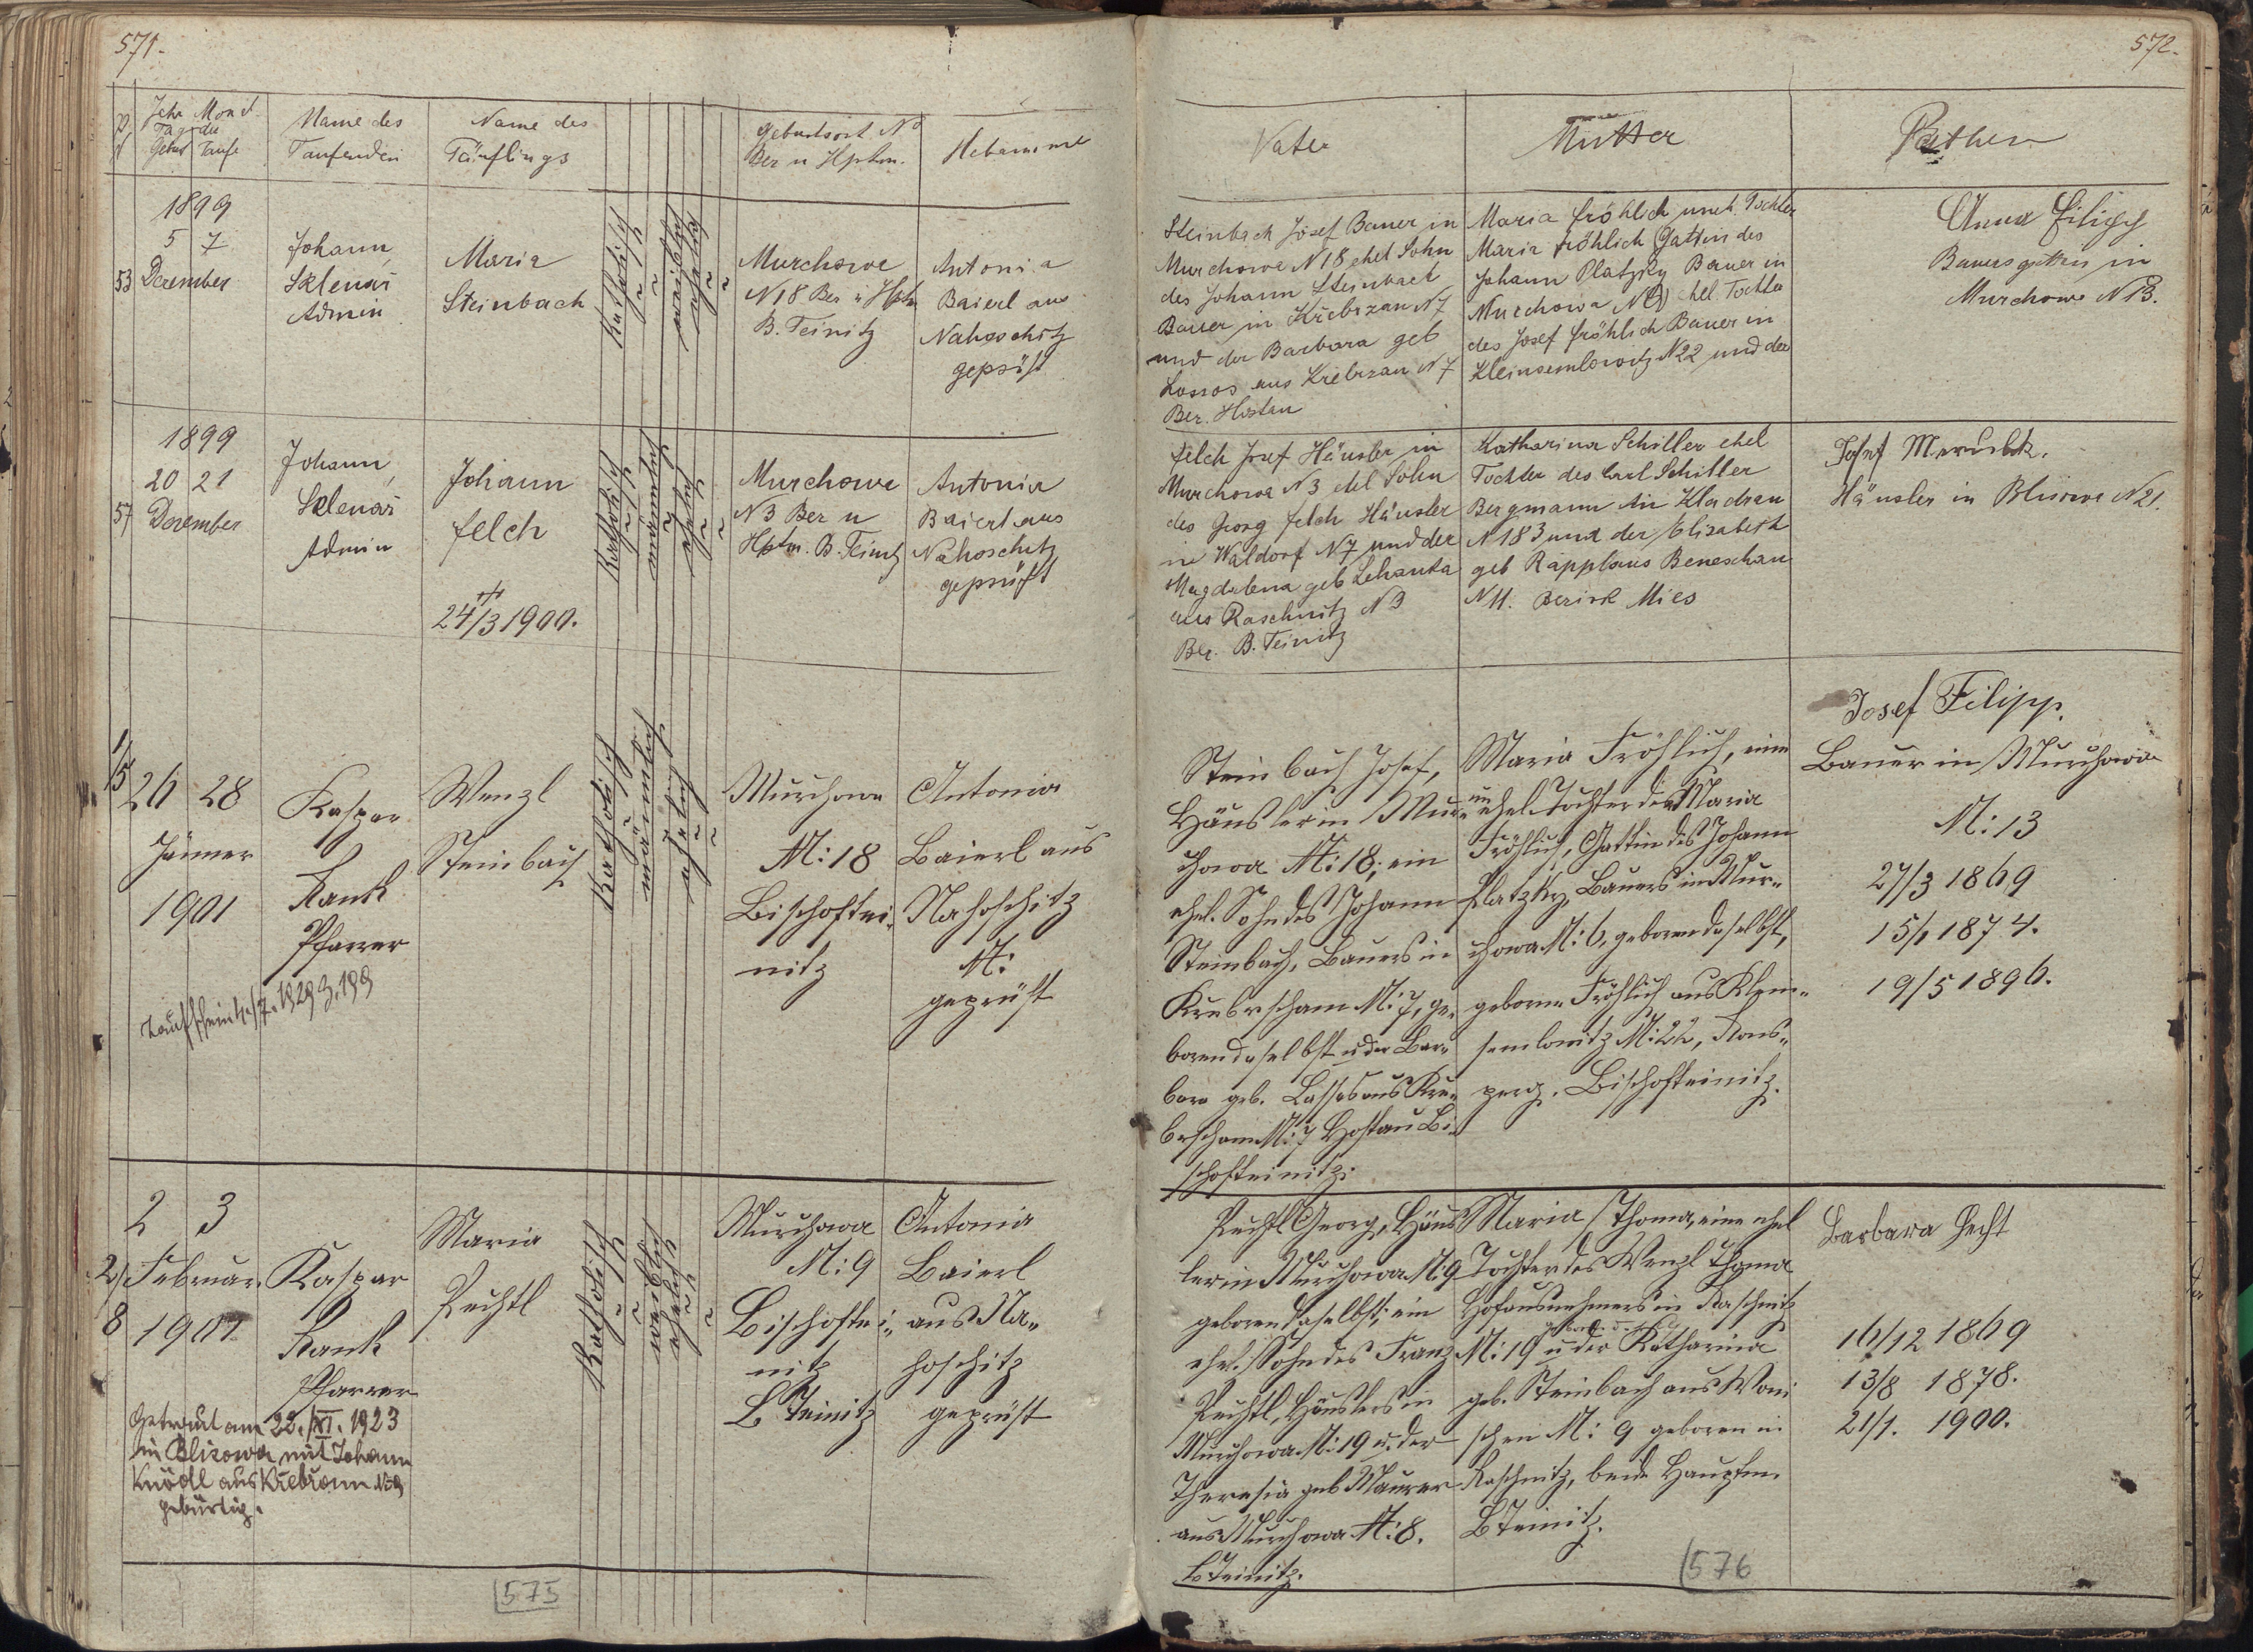 571.
Jahr Monat
Tag der
Geburt Taufe
Name des
Taufenden
Name des
Täuflings
Geburtsort No
Ber u Hptm.
Hebamme
1899
5 7
53 December
Johann
Sklenář
Admin
Maria
Steinbach
Katholisch
weiblich
Murchowa
N 18 Ber u Hptm
B. Teinitz
Antonia
Baierl aus
Nahoschitz
geprüft
1899
20 21
57 December
Johann
Sklenář
Admin
Johann
Felch
24/3 1900.
Katholisch
männlich
ehelich
Murchowa
N 3 Ber u
Hptm. B. Teinitz
Antonia
Baierl aus
Nahoschitz
geprüft
1/5
26 28
Jänner
1901
Kaspar
Rank
Pfarrer
Wenzl
Steinbach
Katholisch
männlich
ehelich
Murchowa
N: 18
Bischoftei-
nitz
Antonia
Baierl aus
Nahoschitz
N:
geprüft
2 3
2/ Februar
8 1901
Kaspar
Rank
Pfarrer
Maria
Pechtl
Katholisch
weiblich
ehelich
Murchowa
N: 9
Bischoftei„
nitz
B Teinitz
Antonia
Baierl
aus Na„
hoschitz
geprüft
Getraut am 22./XI. 1923
in Blisowa mit Johann
Knödl aus Křebřann N: 9
gebürtig.
575
572.
Vater
Mutter
Pathen
Steinbach Josef Bauer in
Murchowa N 18 ehel Sohn
des Johann Steinbach
Bauer in Křebrzan N 7
und der Barbara geb
Lossos aus Křebrzan N 7
Ber. Hostau
Maria Fröhlich uneh. Tochter
Maria Fröhlich Gattin des
Johann Platzky Bauer in
Murchowa ehel. Tochter
des Josef Fröhlich Bauer in
Kleinsemlowitz N 22 und der
Anna Filipp
Bauersgattin in
Murchowa N 13.
Felch Josef Häusler in
Murchowa N 3 ehel Sohn
des Georg Felch Häusler
in Waldorf N 7 und der
Magdalena geb Lehanka
aus Raschnitz N 3
Ber. B. Teinitz
Katharina Schiller ehel
Tochter des Carl Schiller
Bergmann in Kladrau
N 183 und der Elisabeth
geb Rappl aus Beneschau
N 11. Bezirk Mies
Josef
Häusler in Blisowa N 21.
Steinbach Josef,
Häusler in Mur„
chowa N: 18; ein
ehel. Sohn des Johann
Steinbach, Bauers in
Krebrscham N: 7, ge„
boren daselbst u der Bar„
bara geb. Lassos aus Kre„
brscham N: 7 Hostau Bi„
schofteinitz.
Maria Fröhlich, eine
unehel. Tochter der Maria
Fröhlich, Gattin des Johann
Platzky, Bauers in Mur„
chowa N: 6, geboren daselbst,
geborene Fröhlich aus Klein„
semlowitz N: 22, Rons„
perg. Bischofteinitz.
Josef Filipp,
Bauer in Murchowa
N: 13
27/3 1869
15/1 1874.
19/5 1896.
Pechtl Georg, Häus
ler in Murchowa N: 9
geboren daselbst; ein
ehel. Sohn des Franz
Pechtl, Häuslers in
Murchowa N: 19 u. der
Theresia geb Maurer
aus Murchowa N: 8.
B Teinitz.
Maria Thoma, eine ehel
Tochter des Wenzl Thoma
Hofausnehmers in Raschnitz
N: 19 u der Katharina
geb. Steinbach aus Woni
schen N: 9 geboren in
Raschnitz, beide Hauptm.
B Teinitz.
Barbara Hecht
16/12 1869
13/8 1878.
21/1. 1900.
576